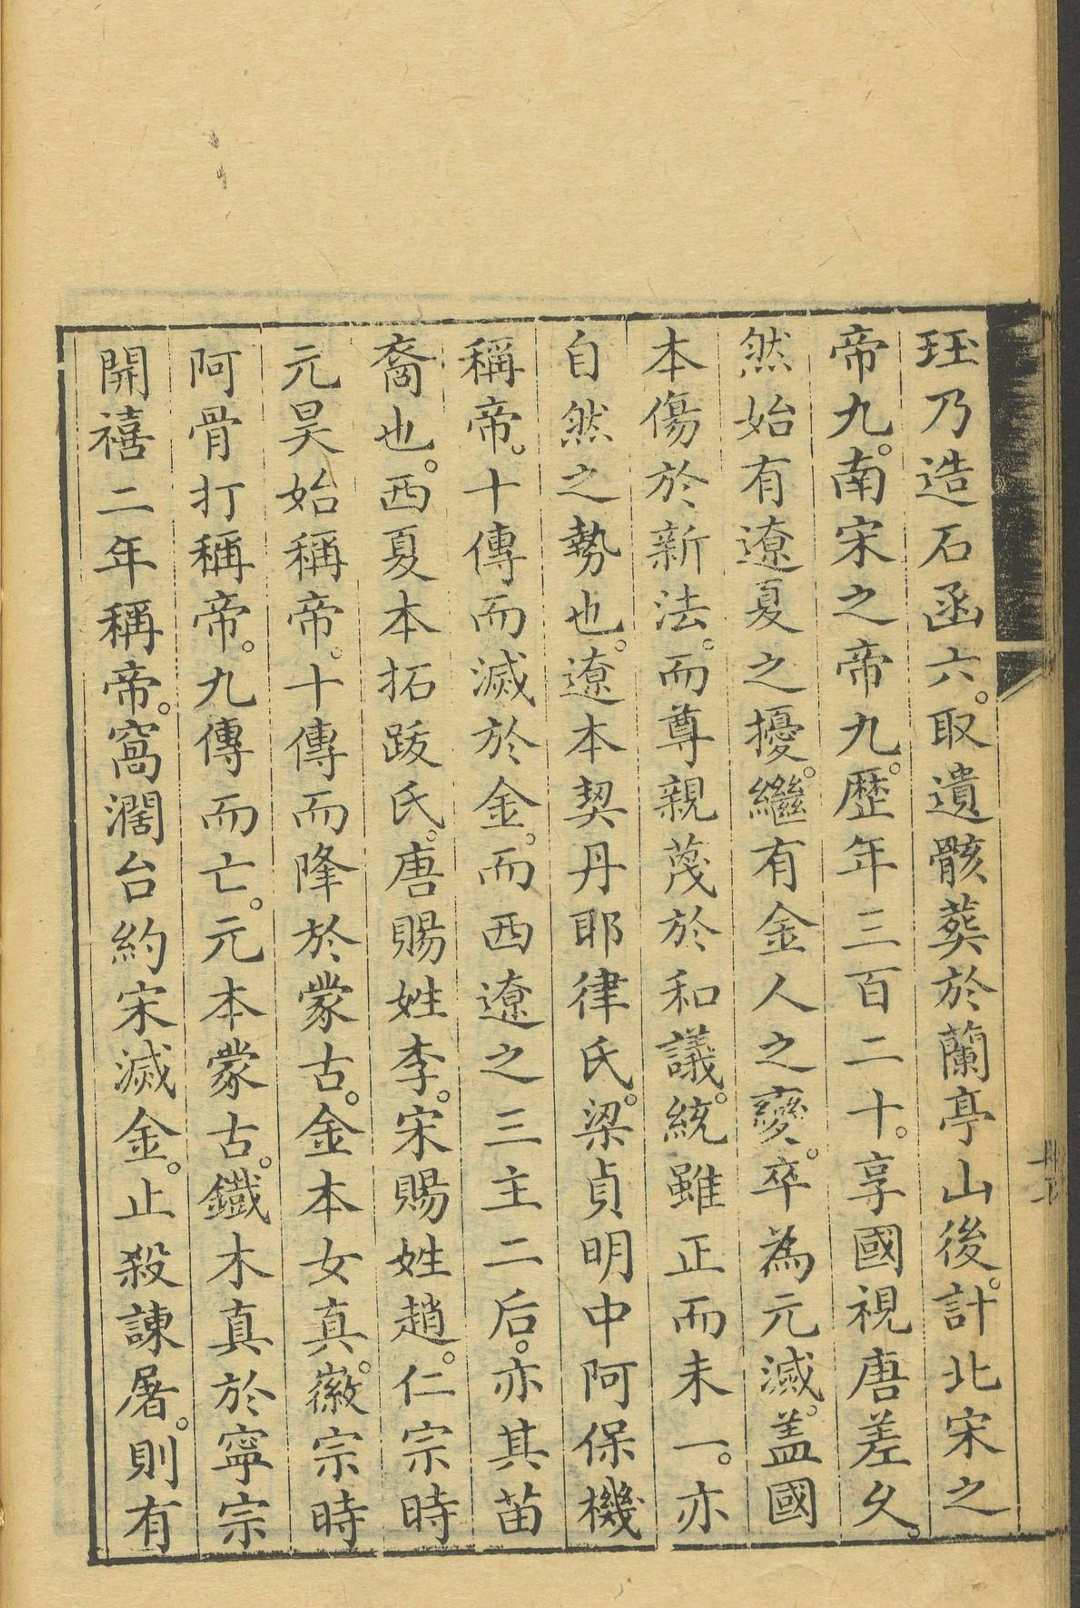 珏乃造石函六。取遺骸葬於蘭亭山後。計北宋之
帝九。南宋之帝九。歷年三百二十。享國視唐差久。
然始有遼夏之擾。繼有金人之變。卒為元滅。盖國
本傷於新法。而尊親蔑於和議。統雖正而未一。亦
自然之勢也。遼本契丹耶律氏。梁貞明中阿保機
稱帝。十傳而滅於金。而西遼之三主二后。亦其苗
裔也。西夏本拓跋氏。唐賜姓李。宋賜姓趙。仁宗時
元昊始稱帝。十傳而降於蒙古。金本女真。徽宗時
阿骨打稱帝。九傳而亡。元本蒙古。鐵木真於寧宗
開禧二年稱帝。窩濶台約宋滅金。止殺諫屠。則有